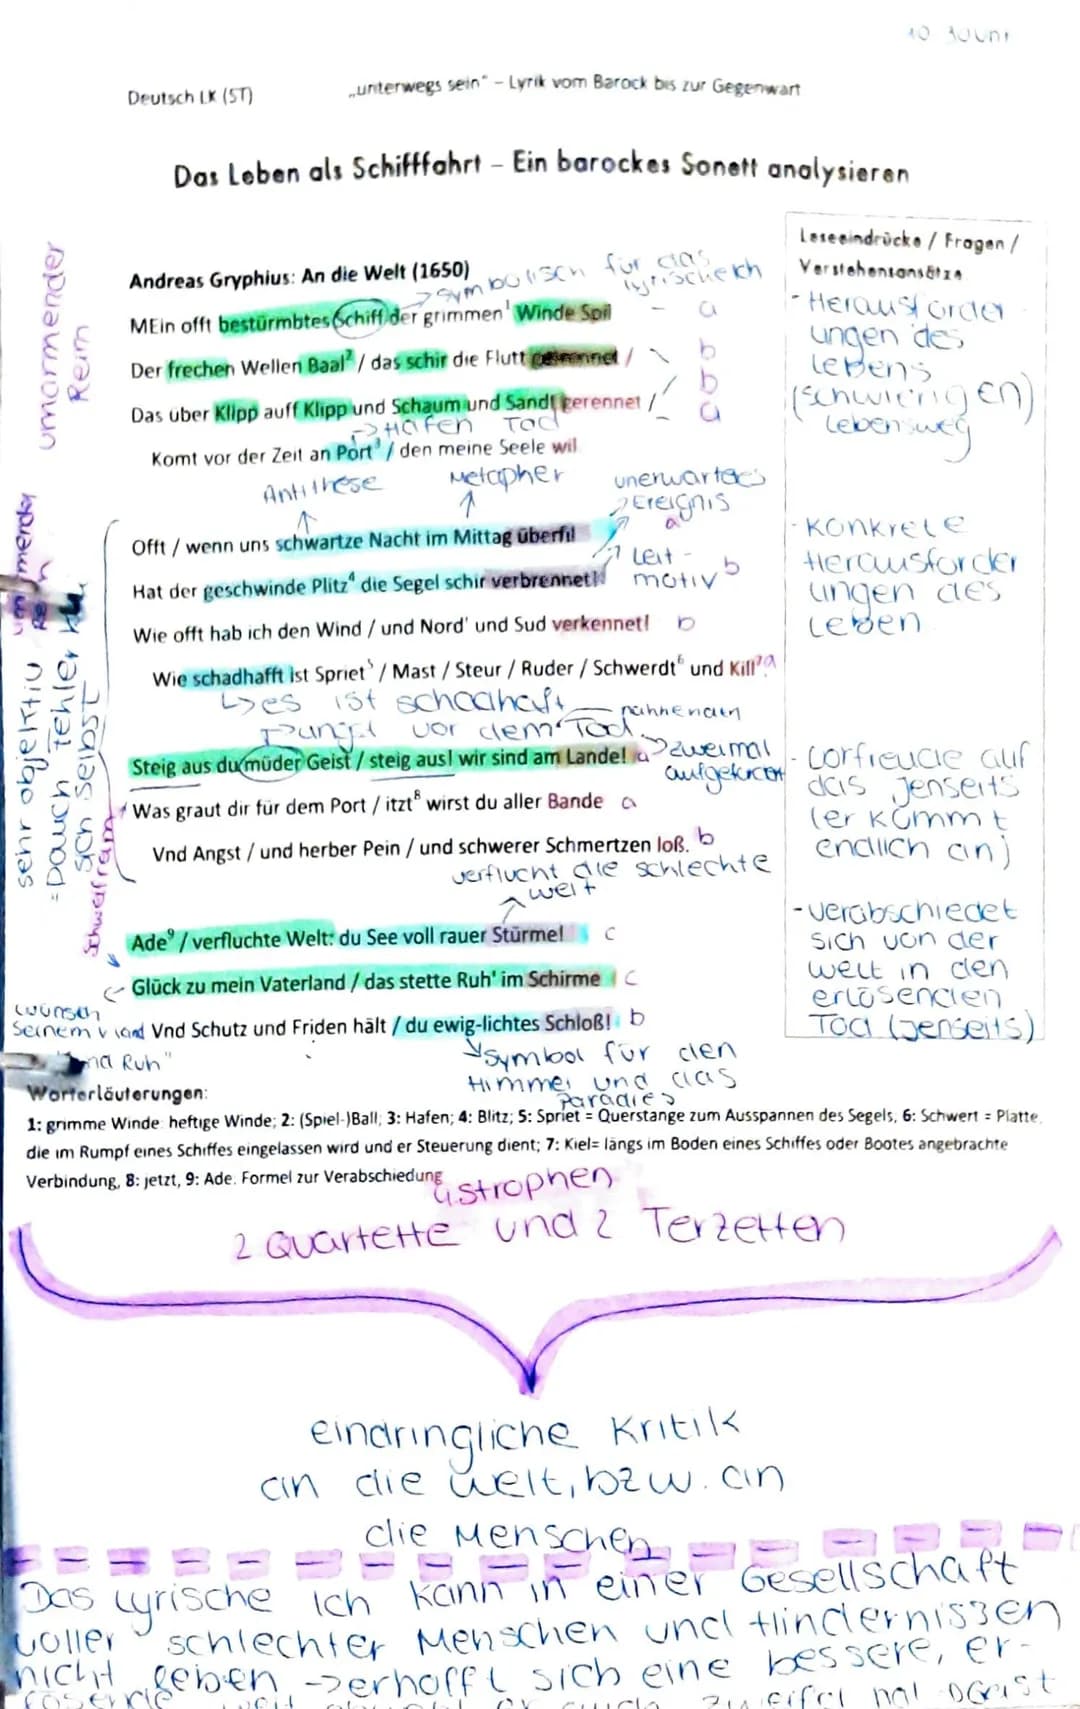 10 Juuni
Deutsch LK (ST)
„unterwegs sein" – Lyrik vom Barock bis zur Gegenwart
Das Leben als Schifffahrt – Ein barockes Sonett analysieren
Leseeindrücke / Fragen /
Verstehensansätze
Andreas Gryphius: An die Welt (1650)
symbolisch für das
lyrische Ich
MEin offt bestürmbtes Schiff der grimmen¹ Winde Spil
a
Der frechen Wellen Baal² / das schir die Flutt /
b
Das uber Klipp auff Klipp und Schaum und Sandt gerennet /
b
a
-> Hafen Tod
Komt vor der Zeit an Port³ / den meine Seele wil.
umarmender
Reim
- Herausforder
ungen des
lebens
(schwierigen)
lebensweg
Antithese
Metapher
unerwartetes
Ereignis
Offt / wenn uns schwartze Nacht im Mittag überfil
a
Hat der geschwinde Plitz⁴ die Segel schir verbrennet!
Leit-
motiv
b
Wie offt hab ich den Wind / und Nord' und Sud verkennet!
b
Wie schadhafft ist Spriet⁵ / Mast / Steur / Ruder / Schwerdt⁶ und Kill⁷
a
- Konkrete
Herausforder
ungen des
Leben
↳ es ist schadhaft
Angst vor dem Tod
Steig aus du müder Geist / steig aus! wir sind am Lande!
a
-> zweimal
Was graut dir für dem Port / itzt⁸ wirst du aller Bande
a
Vnd Angst / und herber Pein / und schwerer Schmertzen loß.
b
- Vorfreude auf
das Jenseits
(er kommt
endlich an)
sehr objektiv
= auch Fehler
sich selbst
Schweifreim
verflucht die schlechte
welt
Ade⁹ / verfluchte Welt: du See voll rauer Stürme!
c
Glück zu mein Vaterland / das stette Ruh' im Schirme
c
Vnd Schutz und Friden hält / du ewig-lichtes Schloß!
b
wünsch
seinem
Ruh"
- verabschiedet
sich von der
welt in den
erlösenden
Tod (Jenseits)
Symbol für den
Himmel und das
Paradies
Worterläuterungen:
1: grimme Winde: heftige Winde; 2: (Spiel-)Ball; 3: Hafen; 4: Blitz; 5: Spriet = Querstange zum Ausspannen des Segels, 6: Schwert = Platte,
die im Rumpf eines Schiffes eingelassen wird und er Steuerung dient; 7: Kiel= längs im Boden eines Schiffes oder Bootes angebrachte
Verbindung, 8: jetzt, 9: Ade. Formel zur Verabschiedung
4 strophen
2 Quartette und 2 Terzetten
eindringliche Kritik
an die welt, bzw. an
die Menschen
Das lyrische Ich kann in einer Gesellschaft
voller schlechter Menschen und Hindernissen
nicht leben -> erhofft sich eine bessere, er-